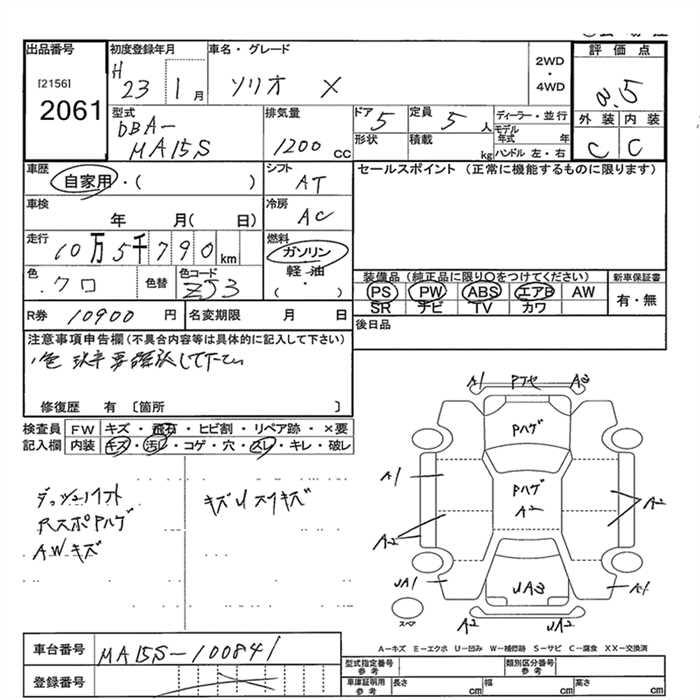 出品番号
[2156]
2061
初度登録年月
H 23 1 月
車名・グレード
ソリオ X
2WD
・
4WD
評価点
3.5
外装 内装
C C
型式
DBA-
MA15S
排気量
1200 cc
ドア 5
形状
定員 5 人
積載 kg
ディーラー・並行
モデル
年式 年
ハンドル 左・右
車歴
自家用・( )
シフト
AT
セールスポイント (正常に機能するものに限ります)
車検
年 月( 日)
冷房
AC
走行
10万5千790 km
燃料
ガソリン
軽油・
( )
色
クロ
色替
色コード
ZJ3
装備品(純正品に限り○をつけてください)
新車保証書
PS PW ABS エアB AW
有・無
SR ナビ TV カワ
R券 10900 円
名変期限 月 日
後日品
注意事項申告欄(不具合内容等は具体的に記入して下さい)
修復歴 有 〔箇所 〕
検査員 FW キズ・ ・ヒビ割・リペア跡・×要
記入欄 内装 キズ・汚れ・コゲ・穴・スレ・キレ・破レ
RスポPハゲ
AWキズ
キズU スリキズ
A1 A3
Pハゲ
A1
Pハゲ
A2
A2
A2
UA1
UA3
A1
A2 UA2
スペア
A-キズ E-エクボ U-凹み W-補修跡 S-サビ C-腐食 XX-交換済
車台番号 MA15S-100841
登録番号
型式指定番号
参考
類別区分番号
参考
車庫証明用
参考
長さ cm 幅 cm 高さ cm